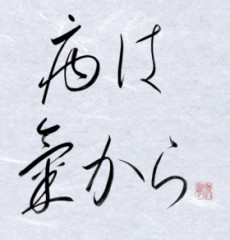 病は
氣から